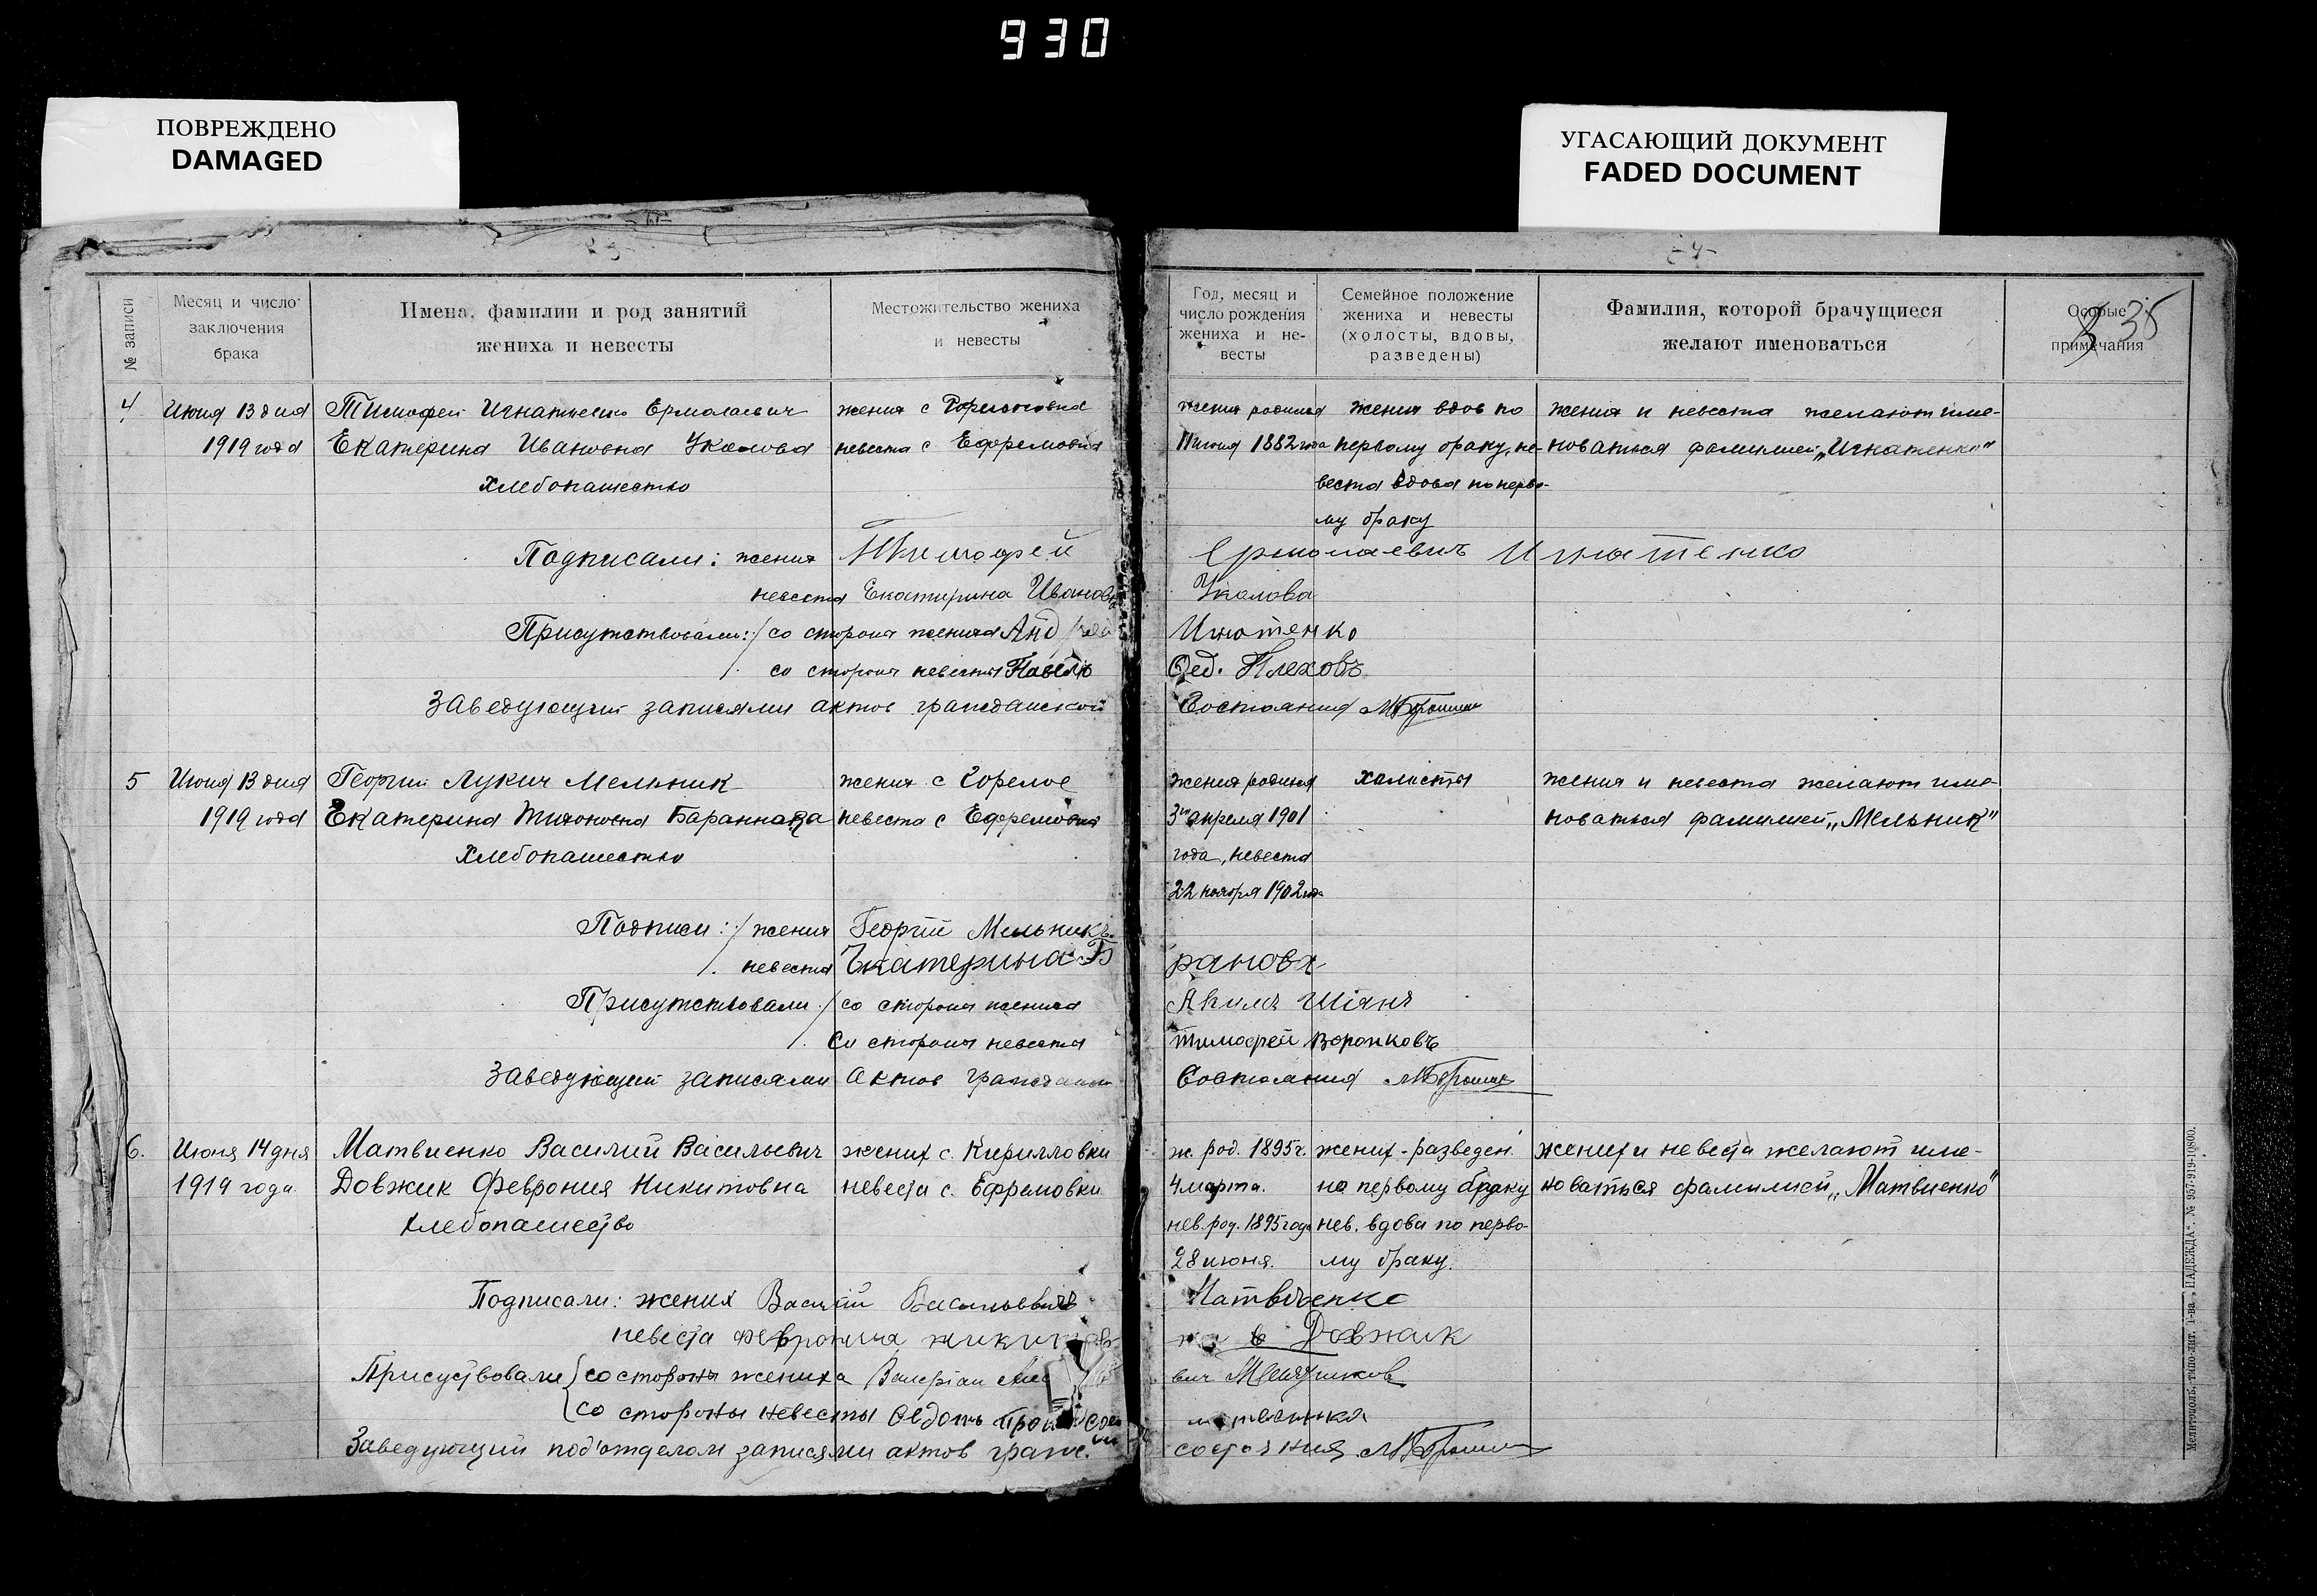 930
ПОВРЕЖДЕНО
DAMAGED
УГАСАЮЩИЙ ДОКУМЕНТ
FADED DOCUMENT
№ записи
Месяц и число заключения брака
Имена, фамилии и род занятий жениха и невесты
Местожительство жениха и невесты
Год, месяц и число рождения жениха и не-весты
Семейное положение жениха и невесты (холосты, вдовы, разведены)
Фамилия, которой брачущиеся желают именоваться
Особые примечания
35
4 Июня 13 дня Тимофей Игнатенко Ермолаевич жених с жених родился жених вдов по жених и невеста желают име-
1919 года Екатерина Ивановна Уколова невеста с Ефремовка 11 июня 1882 года первому браку, не- новаться фамилией „Игнатенко"
хлебопашество веста вдова по перво-
му браку
Подписали: жених Тимофей Ермолаевич Игнатенко
невеста Екатерина Иванов Уколова
Присутствовали: со стороны жениха Андрей Игнатенко
со стороны невесты Павелъ Фед. Плеховъ
Заведующий записями актов гражданской Состояния
5 Июня 13 дня Георгий Лукич Мельник жених с Горелое жених родился холосты жених и невеста желают име-
1919 года Екатерина невеста с Ефремовка 3го апреля 1901 новаться фамилией „Мельник"
хлебопашество года, невеста
22 ноября 1902 года
Подписи: жених Георгій Мельникъ
невеста Екатерина Б рановa
Присутствовали со стороны жениха Акимъ Шіянъ
со стороны невесты Тимофей Воропковъ
Заведующий записями актов граждан Состояния
6. Июня 14 дня Матвиенко Василий Васильевич жених с. Кирилловки ж. род. 1895 г. жених - разведен. жених и невеста желают име-
1919 года Довжик Феврония Никитовна невеста с. Ефремовки 4 марта. по первому браку новаться фамилией „Матвиенко"
хлебопашество нев. род. 1895 года нев. вдова по перво-
28 июня. му браку.
Подписали: жених Василій Васильевичъ Матвіенко
невеста Феврониya никитов на Довжик
Присуствовали со стороны жениха Валеріан вич
со стороны невесты
Заведующий под'отделом записями актов граж. состояния
Мелитополь, типо-лит. Т-ва „НАДЕЖДА". № 957-919-10800.